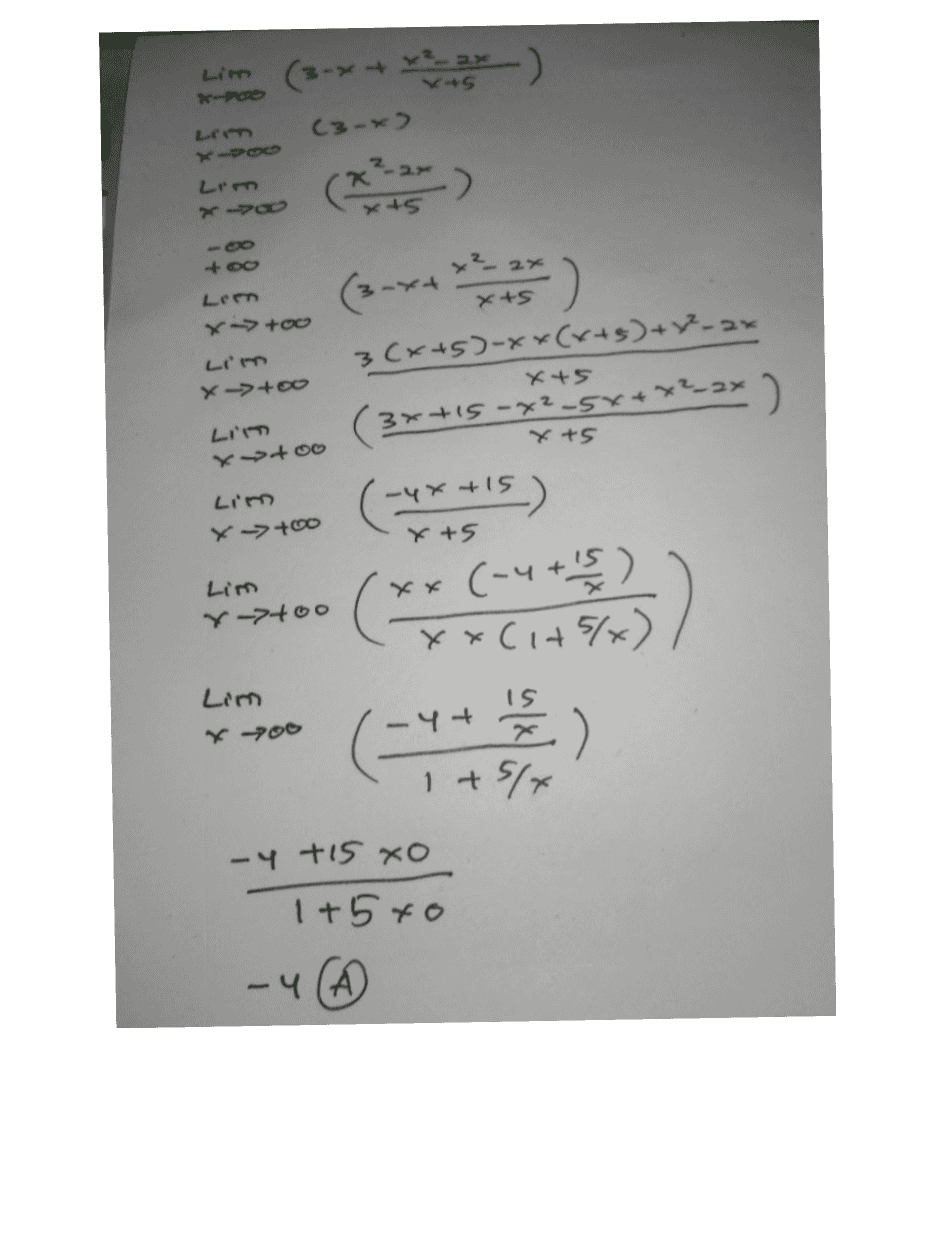 Lim x→∞ (3-x + x²-2x / x+5)
Lim x→∞ (3-x)
Lim x→∞ (x²-2x / x+5)
-∞
+∞
Lim x→+∞ (3-x+ x²-2x / x+5)
Lim x→+∞ 3(x+5)-x×(x+5)+x²-2x / x+5
Lim x→+∞ (3x+15-x²-5x+x²-2x / x+5)
Lim x→+∞ (-4x+15 / x+5)
Lim x→+∞ (x×(-4+15/x) / x×(1+5/x))
Lim x→∞ (-4+ 15/x / 1+5/x)
-4+15×0 / 1+5×0
-4 (A)